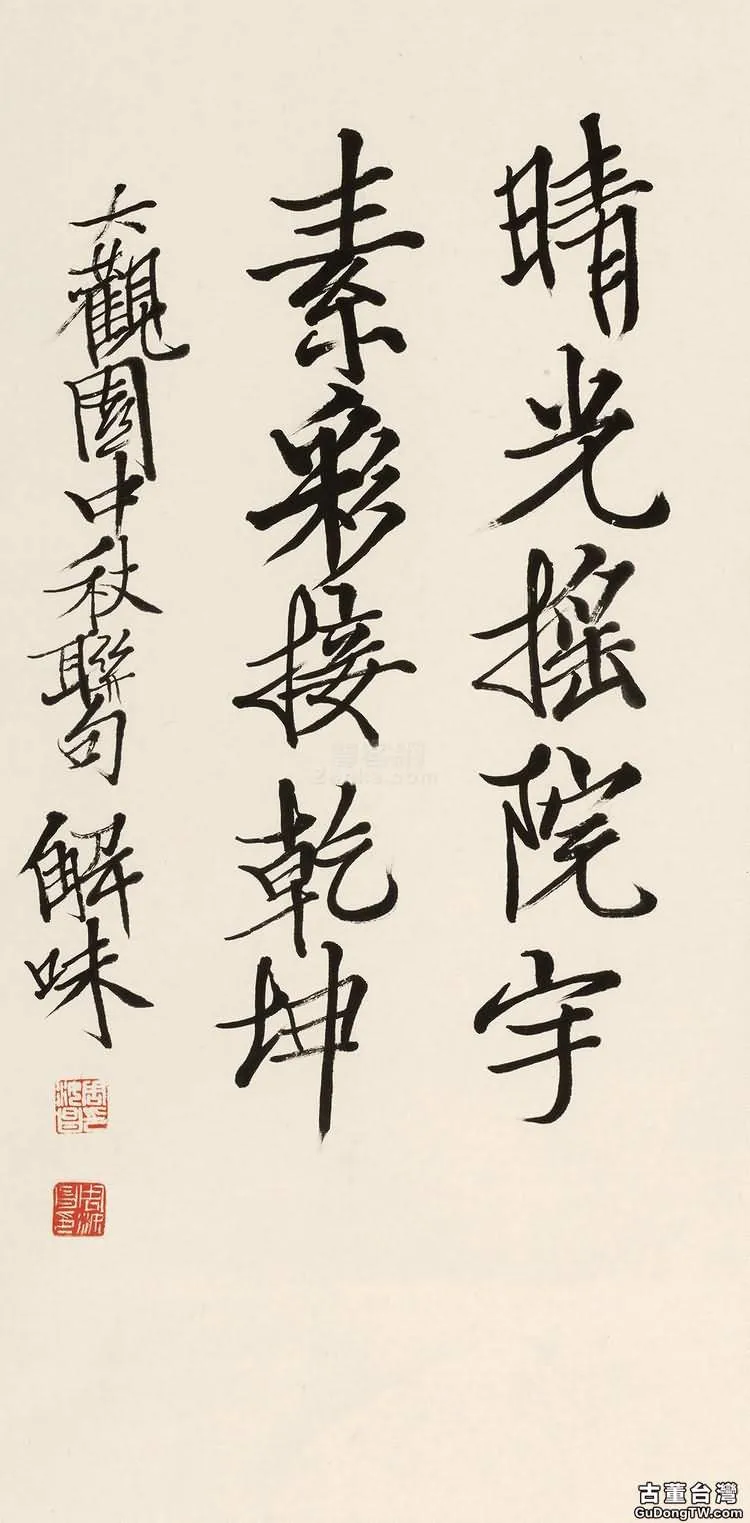 晴光摇院宇
素彩接乾坤
大觀園中秋聯句 解味
周汝昌印
古董台灣
GuDongTW.com